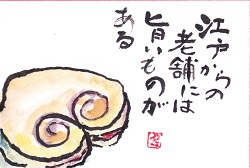 江戸からの
老舗には
旨いものが
ある